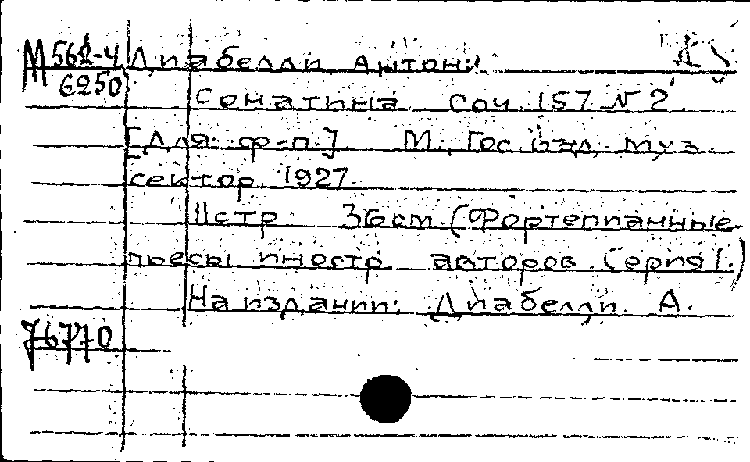 М 562-4 Диабелли Антони
6250
Сонатина Соч. 157 № 2
[Для ф-п.] М., Гос. изд. муз.
сектор. 1927.
11 стр 36 см (Фортепианные
пьесы иностр авторов. Серия I.)
На издании: Диабелли. А.
76770